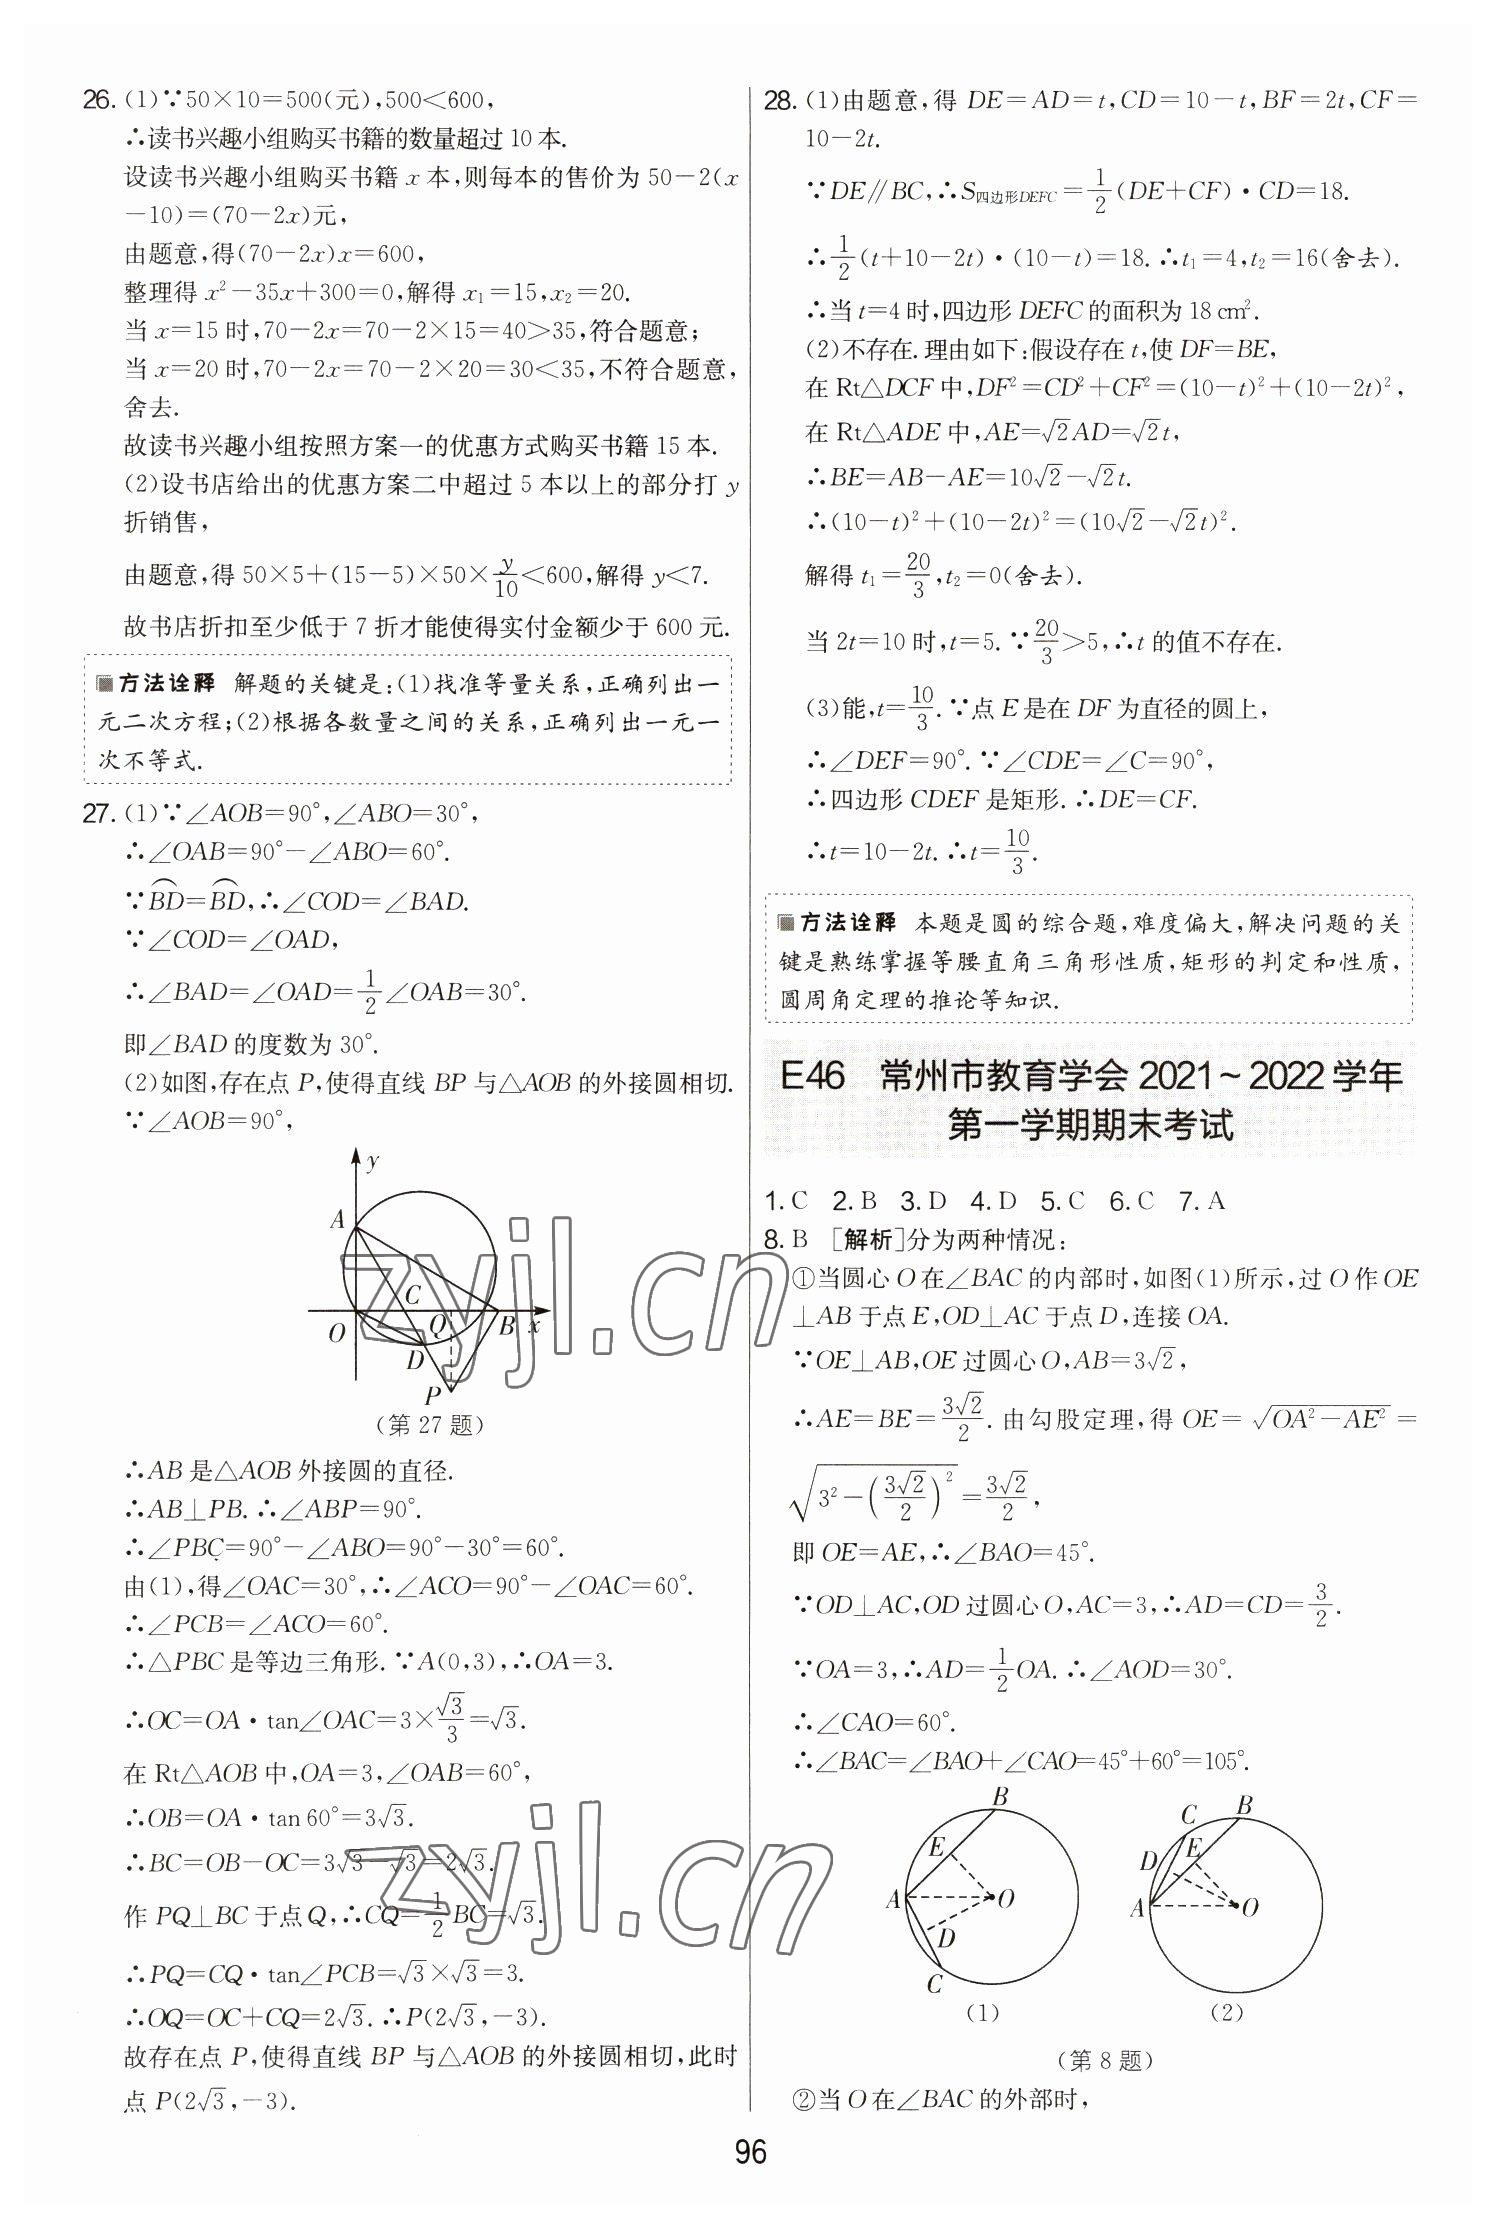 26. (1)∵50×10=500(元),500<600,
∴读书兴趣小组购买书籍的数量超过 10 本.
设读书兴趣小组购买书籍 x 本,则每本的售价为 50-2(x
-10)=(70-2x)元,
由题意,得(70-2x)x=600,
整理得 x²-35x+300=0,解得 x₁=15,x₂=20.
当 x=15 时,70-2x=70-2×15=40>35,符合题意;
当 x=20 时,70-2x=70-2×20=30<35,不符合题意,
舍去.
故读书兴趣小组按照方案一的优惠方式购买书籍 15 本.
(2)设书店给出的优惠方案二中超过 5 本以上的部分打 y
折销售,
由题意,得 50×5+(15-5)×50×y/10<600,解得 y<7.
故书店折扣至少低于 7 折才能使得实付金额少于 600 元.
方法诠释 解题的关键是:(1)找准等量关系,正确列出一
元二次方程;(2)根据各数量之间的关系,正确列出一元一
次不等式.
27. (1)∵∠AOB=90°,∠ABO=30°,
∴∠OAB=90°-∠ABO=60°.
∵⌒BD=⌒BD,∴∠COD=∠BAD.
∵∠COD=∠OAD,
∴∠BAD=∠OAD=1/2∠OAB=30°.
即∠BAD 的度数为 30°.
(2)如图,存在点 P,使得直线 BP 与△AOB 的外接圆相切.
∵∠AOB=90°,
y
A
C
O
Q
B
x
D
P
(第 27 题)
∴AB 是△AOB 外接圆的直径.
∴AB⊥PB.∴∠ABP=90°.
∴∠PBC=90°-∠ABO=90°-30°=60°.
由(1),得∠OAC=30°,∴∠ACO=90°-∠OAC=60°.
∴∠PCB=∠ACO=60°.
∴△PBC 是等边三角形.∵A(0,3),∴OA=3.
∴OC=OA·tan∠OAC=3×√3/3=√3.
在 Rt△AOB 中,OA=3,∠OAB=60°,
∴OB=OA·tan 60°=3√3.
∴BC=OB-OC=3√3-√3=2√3.
作 PQ⊥BC 于点 Q,∴CQ=1/2BC=√3.
∴PQ=CQ·tan∠PCB=√3×√3=3.
∴OQ=OC+CQ=2√3.∴P(2√3,-3).
故存在点 P,使得直线 BP 与△AOB 的外接圆相切,此时
点 P(2√3,-3).
28. (1)由题意,得 DE=AD=t,CD=10-t,BF=2t,CF=
10-2t.
∵DE∥BC,∴S四边形DEFC=1/2(DE+CF)·CD=18.
∴1/2(t+10-2t)·(10-t)=18.∴t₁=4,t₂=16(舍去).
∴当 t=4 时,四边形 DEFC 的面积为 18 cm².
(2)不存在.理由如下:假设存在 t,使 DF=BE,
在 Rt△DCF 中,DF²=CD²+CF²=(10-t)²+(10-2t)²,
在 Rt△ADE 中,AE=√2AD=√2t,
∴BE=AB-AE=10√2-√2t.
∴(10-t)²+(10-2t)²=(10√2-√2t)².
解得 t₁=20/3,t₂=0(舍去).
当 2t=10 时,t=5.∵20/3>5,∴t 的值不存在.
(3)能,t=10/3.∵点 E 是在 DF 为直径的圆上,
∴∠DEF=90°.∵∠CDE=∠C=90°,
∴四边形 CDEF 是矩形.∴DE=CF.
∴t=10-2t.∴t=10/3.
方法诠释 本题是圆的综合题,难度偏大,解决问题的关
键是熟练掌握等腰直角三角形性质,矩形的判定和性质,
圆周角定理的推论等知识.
E46 常州市教育学会 2021~2022 学年
第一学期期末考试
1. C 2. B 3. D 4. D 5. C 6. C 7. A
8. B [解析]分为两种情况:
①当圆心 O 在∠BAC 的内部时,如图(1)所示,过 O 作 OE
⊥AB 于点 E,OD⊥AC 于点 D,连接 OA.
∵OE⊥AB,OE 过圆心 O,AB=3√2,
∴AE=BE=3√2/2.由勾股定理,得 OE=√(OA²-AE²)=
√(3²-(3√2/2)²)=3√2/2,
即 OE=AE,∴∠BAO=45°.
∵OD⊥AC,OD 过圆心 O,AC=3,∴AD=CD=3/2.
∵OA=3,∴AD=1/2OA.∴∠AOD=30°.
∴∠CAO=60°.
∴∠BAC=∠BAO+∠CAO=45°+60°=105°.
B
E
A
O
D
C
(1)
C
B
D
E
A
O
(2)
(第 8 题)
②当 O 在∠BAC 的外部时,
96
zyjl.cn
zyjl.cn